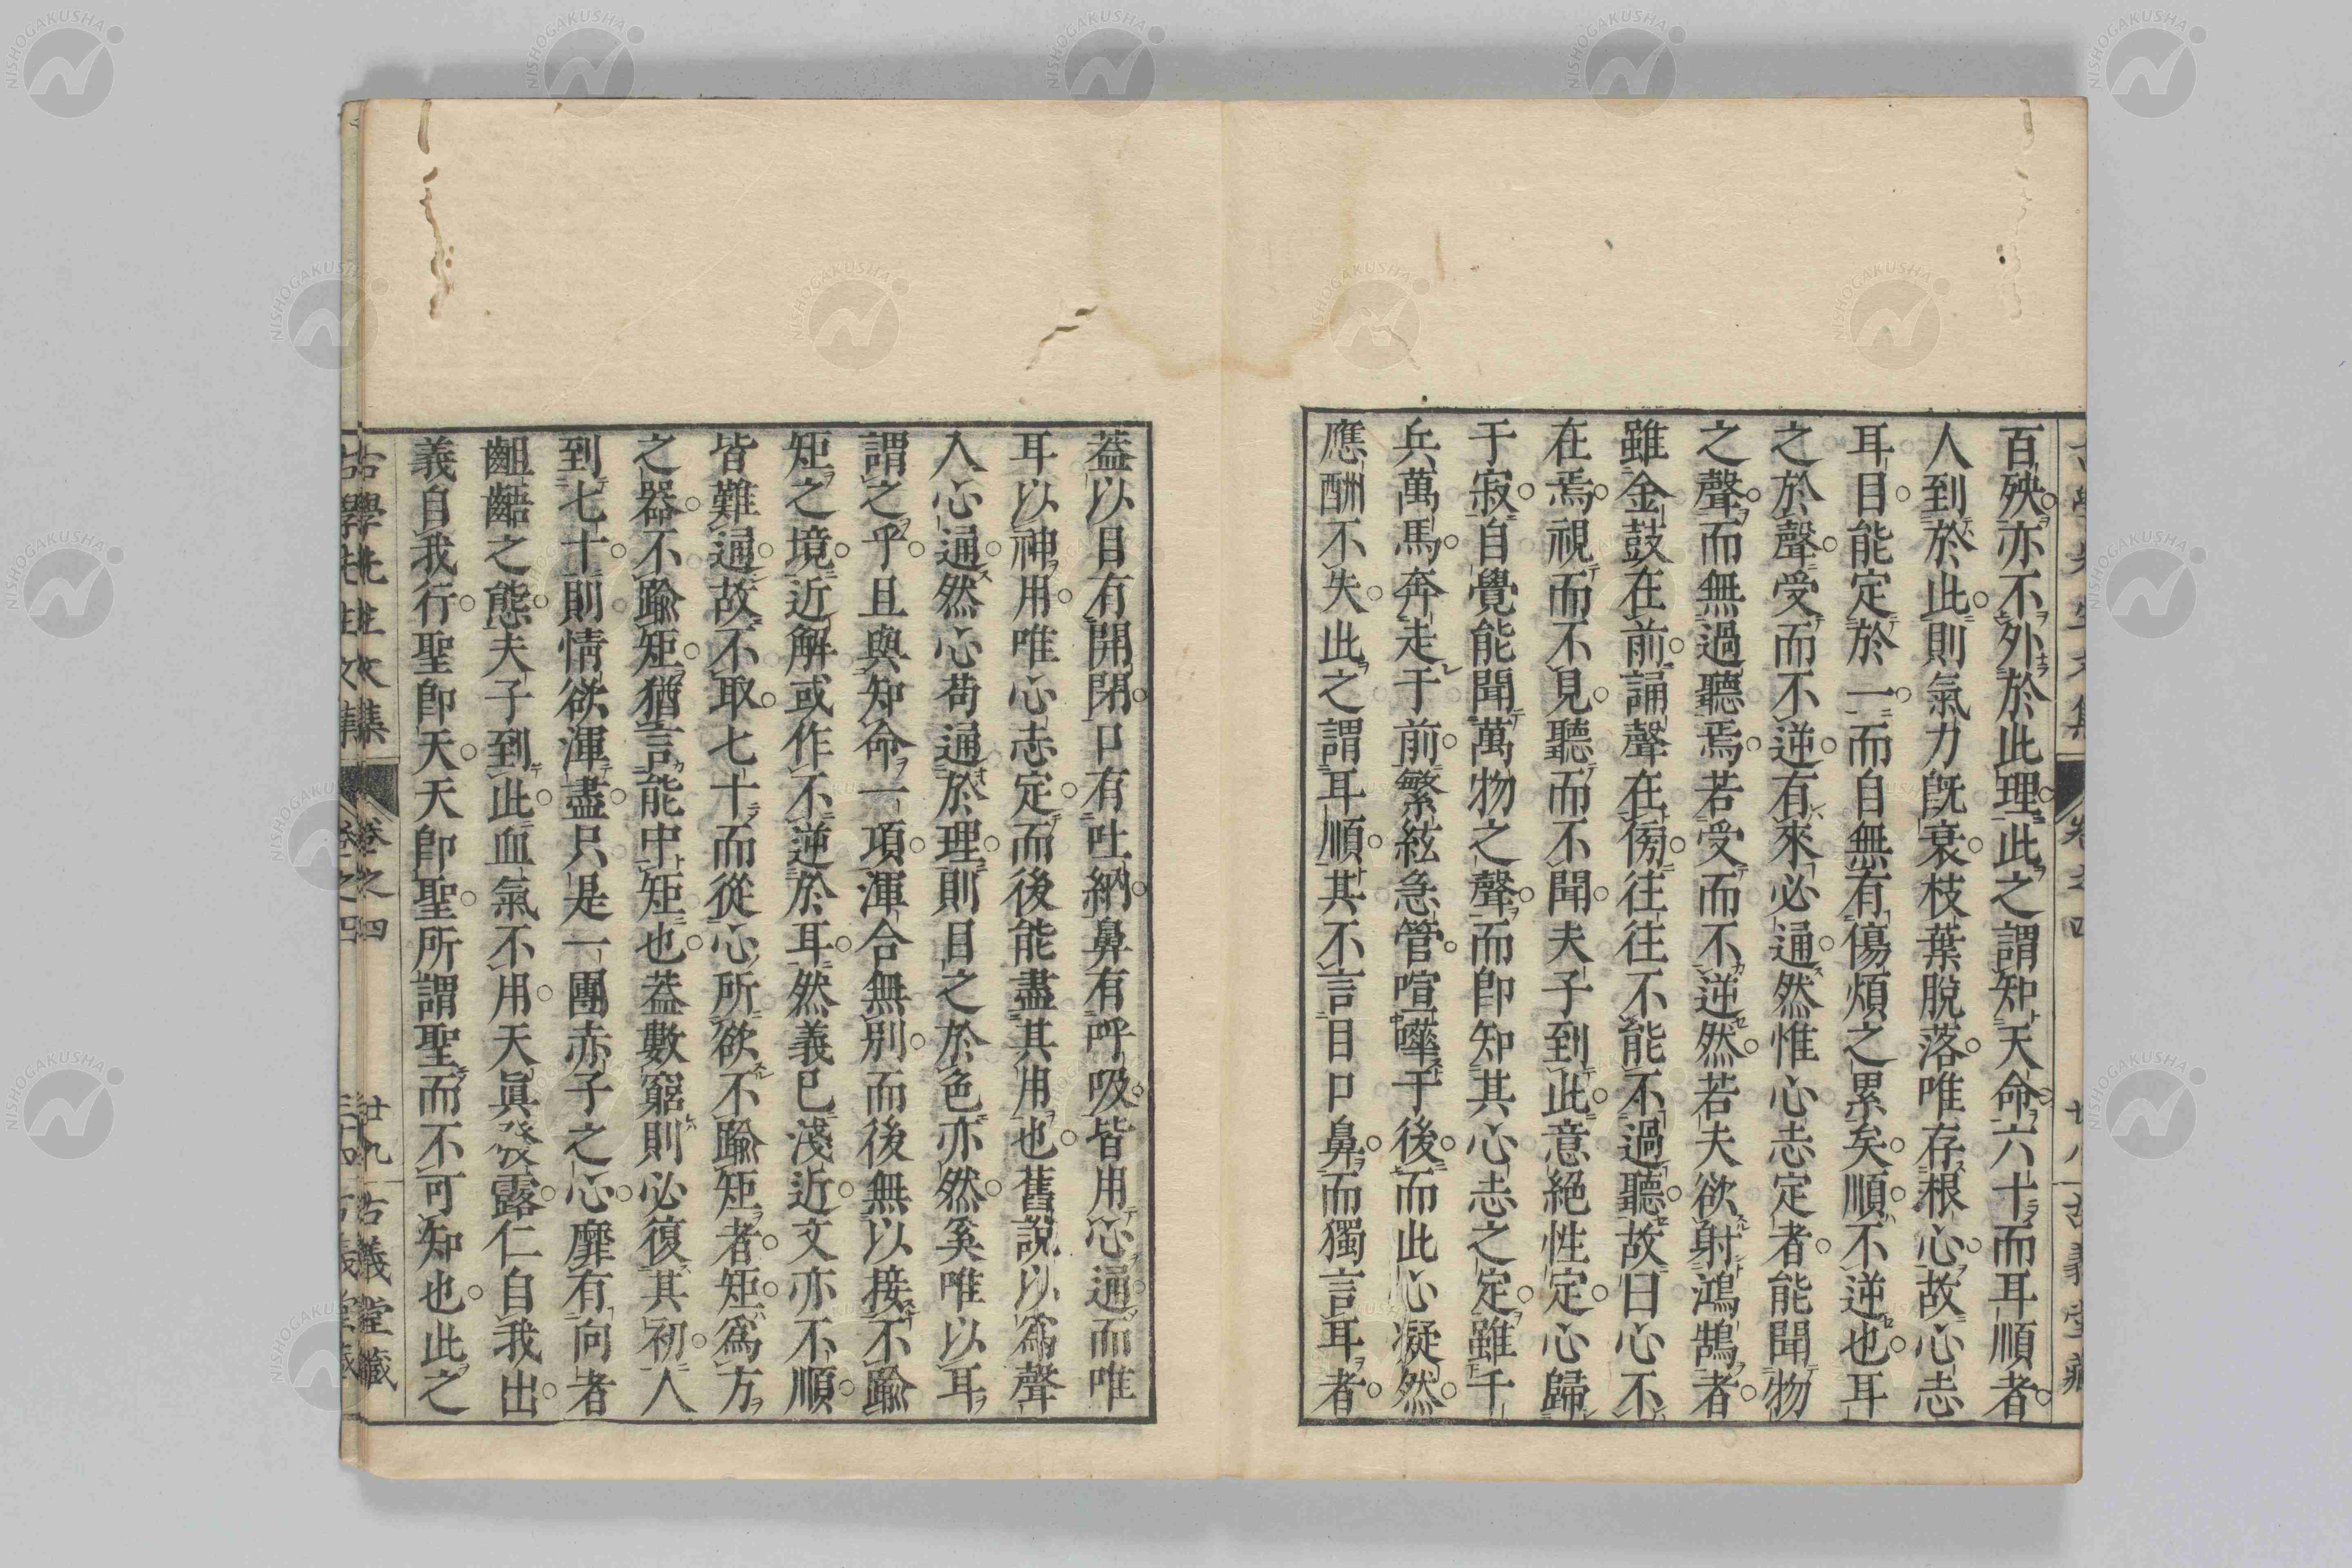 百殃亦不外於此理此之謂知天命六十而耳順者
人到於此則氣力既衰枝葉脫落唯存根心故心志
耳目能定於一而自無有傷煩之累矣順不逆也耳
之於聲受而不逆有來必通然惟心志定者能聞物
之聲而無過聽焉若受而不逆然若夫欲射鴻鵠者
雖金鼓在前誦聲在傍往往不能不過聽故曰心不
在焉視而不見聽而不聞夫子到此意絕性定心歸
于寂自覺能聞萬物之聲而卽知其心志之定雖千
兵萬馬奔走于前繁絃急管喧嘩于後而此心凝然
應酬不失此之謂耳順其不言目口鼻而獨言耳者
蓋以目有開閉口有吐納鼻有呼吸皆用心通而唯
耳以神用唯心志定而後能盡其用也舊說以爲聲
入心通然心苟通於理則目之於色亦然奚唯以耳
謂之乎且與知命一項渾合無別而後無以接不踰
矩之境近解或作不逆於耳然義已淺近文亦不順
皆難通故不取七十而從心所欲不踰矩者矩爲方
之器不踰矩猶言能中矩也蓋數窮則必復其初人
到七十則情欲渾盡只是一團赤子之心靡有向者
齟齬之態夫子到此血氣不用天眞發露仁自我出
義自我行聖卽天天卽聖所謂聖而不可知也此之
古學先生文集 卷之四 廿九 古義堂藏